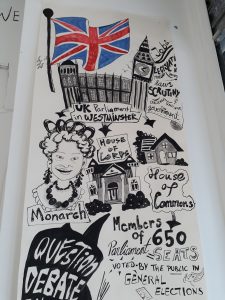 WE
laws
SCRUTINY
government
UK Parliament
in WESTMINSTER
HOUSE
OF
LORDS
House
of
Commons
Monarch
Members
of 650
Parliament SEATS
VOTED BY THE PUBLIC IN
GENERAL
ELECTIONS
QUESTION
DEBATE